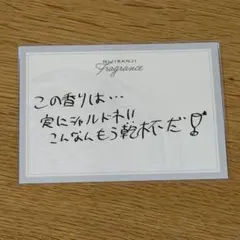 Fragrance
この香りは…
実にシャルドネ!!
こんなんもう乾杯だ